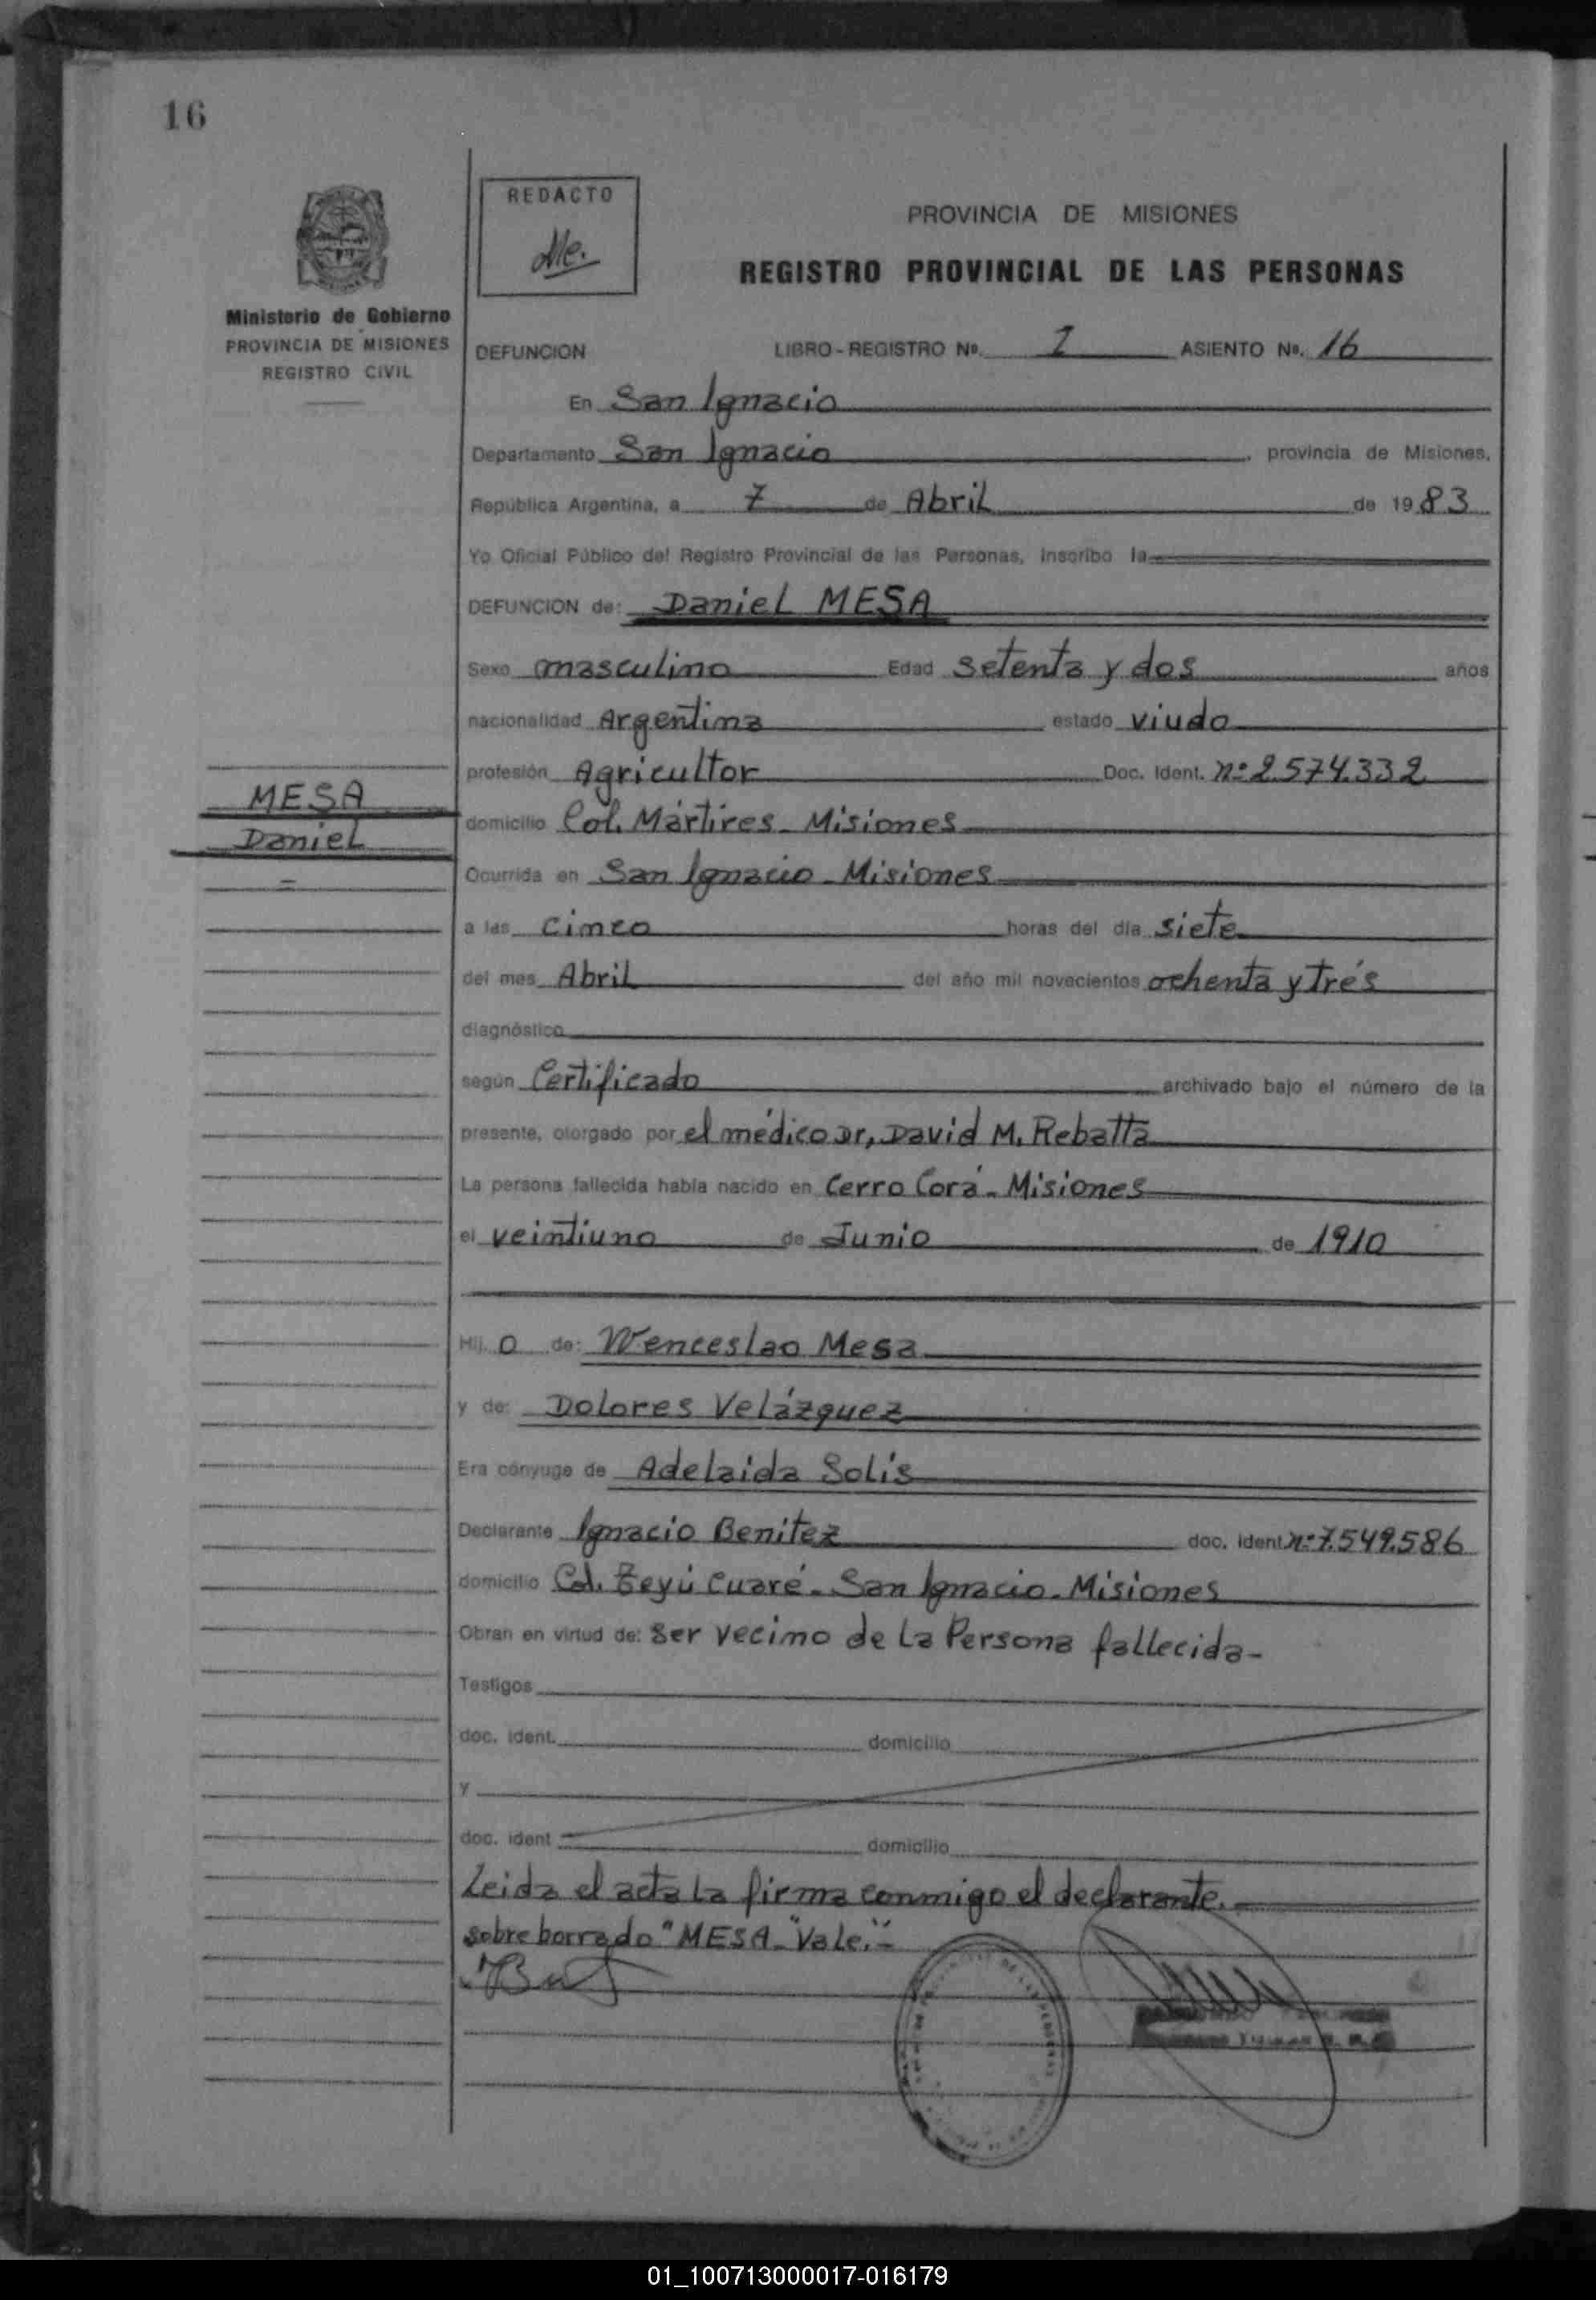 16
REDACTO
Me.
Ministerio de Gobierno
PROVINCIA DE MISIONES
REGISTRO CIVIL
PROVINCIA DE MISIONES
REGISTRO PROVINCIAL DE LAS PERSONAS
DEFUNCION LIBRO-REGISTRO Nº. I ASIENTO Nº. 16
En San Ignacio
Departamento San Ignacio, provincia de Misiones,
República Argentina, a 7 de Abril de 1983
Yo Oficial Público del Registro Provincial de las Personas, inscribo la
DEFUNCION de: Daniel MESA
Sexo masculino Edad setenta y dos años
nacionalidad Argentina estado viudo
profesión Agricultor Doc. Ident. nº 2.574.332
MESA
Daniel
domicilio Col. Mártires - Misiones
Ocurrida en San Ignacio - Misiones
a las cinco horas del día siete
del mes Abril del año mil novecientos ochenta y trés
diagnóstico
según Certificado archivado bajo el número de la
presente, otorgado por el médico Dr, David M. Rebatta
La persona fallecida había nacido en Cerro Corá - Misiones
el veintiuno de Junio de 1910
Hij o de: Wenceslao Mesa
y de: Dolores Velázquez
Era cónyuge de Adelaida Solís
Declarante Ignacio Benítez doc. ident nº 7.549.586
domicilio Col. Teyú Cuaré - San Ignacio - Misiones
Obran en virtud de: ser vecino de la Persona fallecida -
Testigos
doc. ident. domicilio
y
doc. ident domicilio
Leida el acta la firma conmigo el declarante.
sobre borrado "MESA" Vale. -
01_100713000017-016179